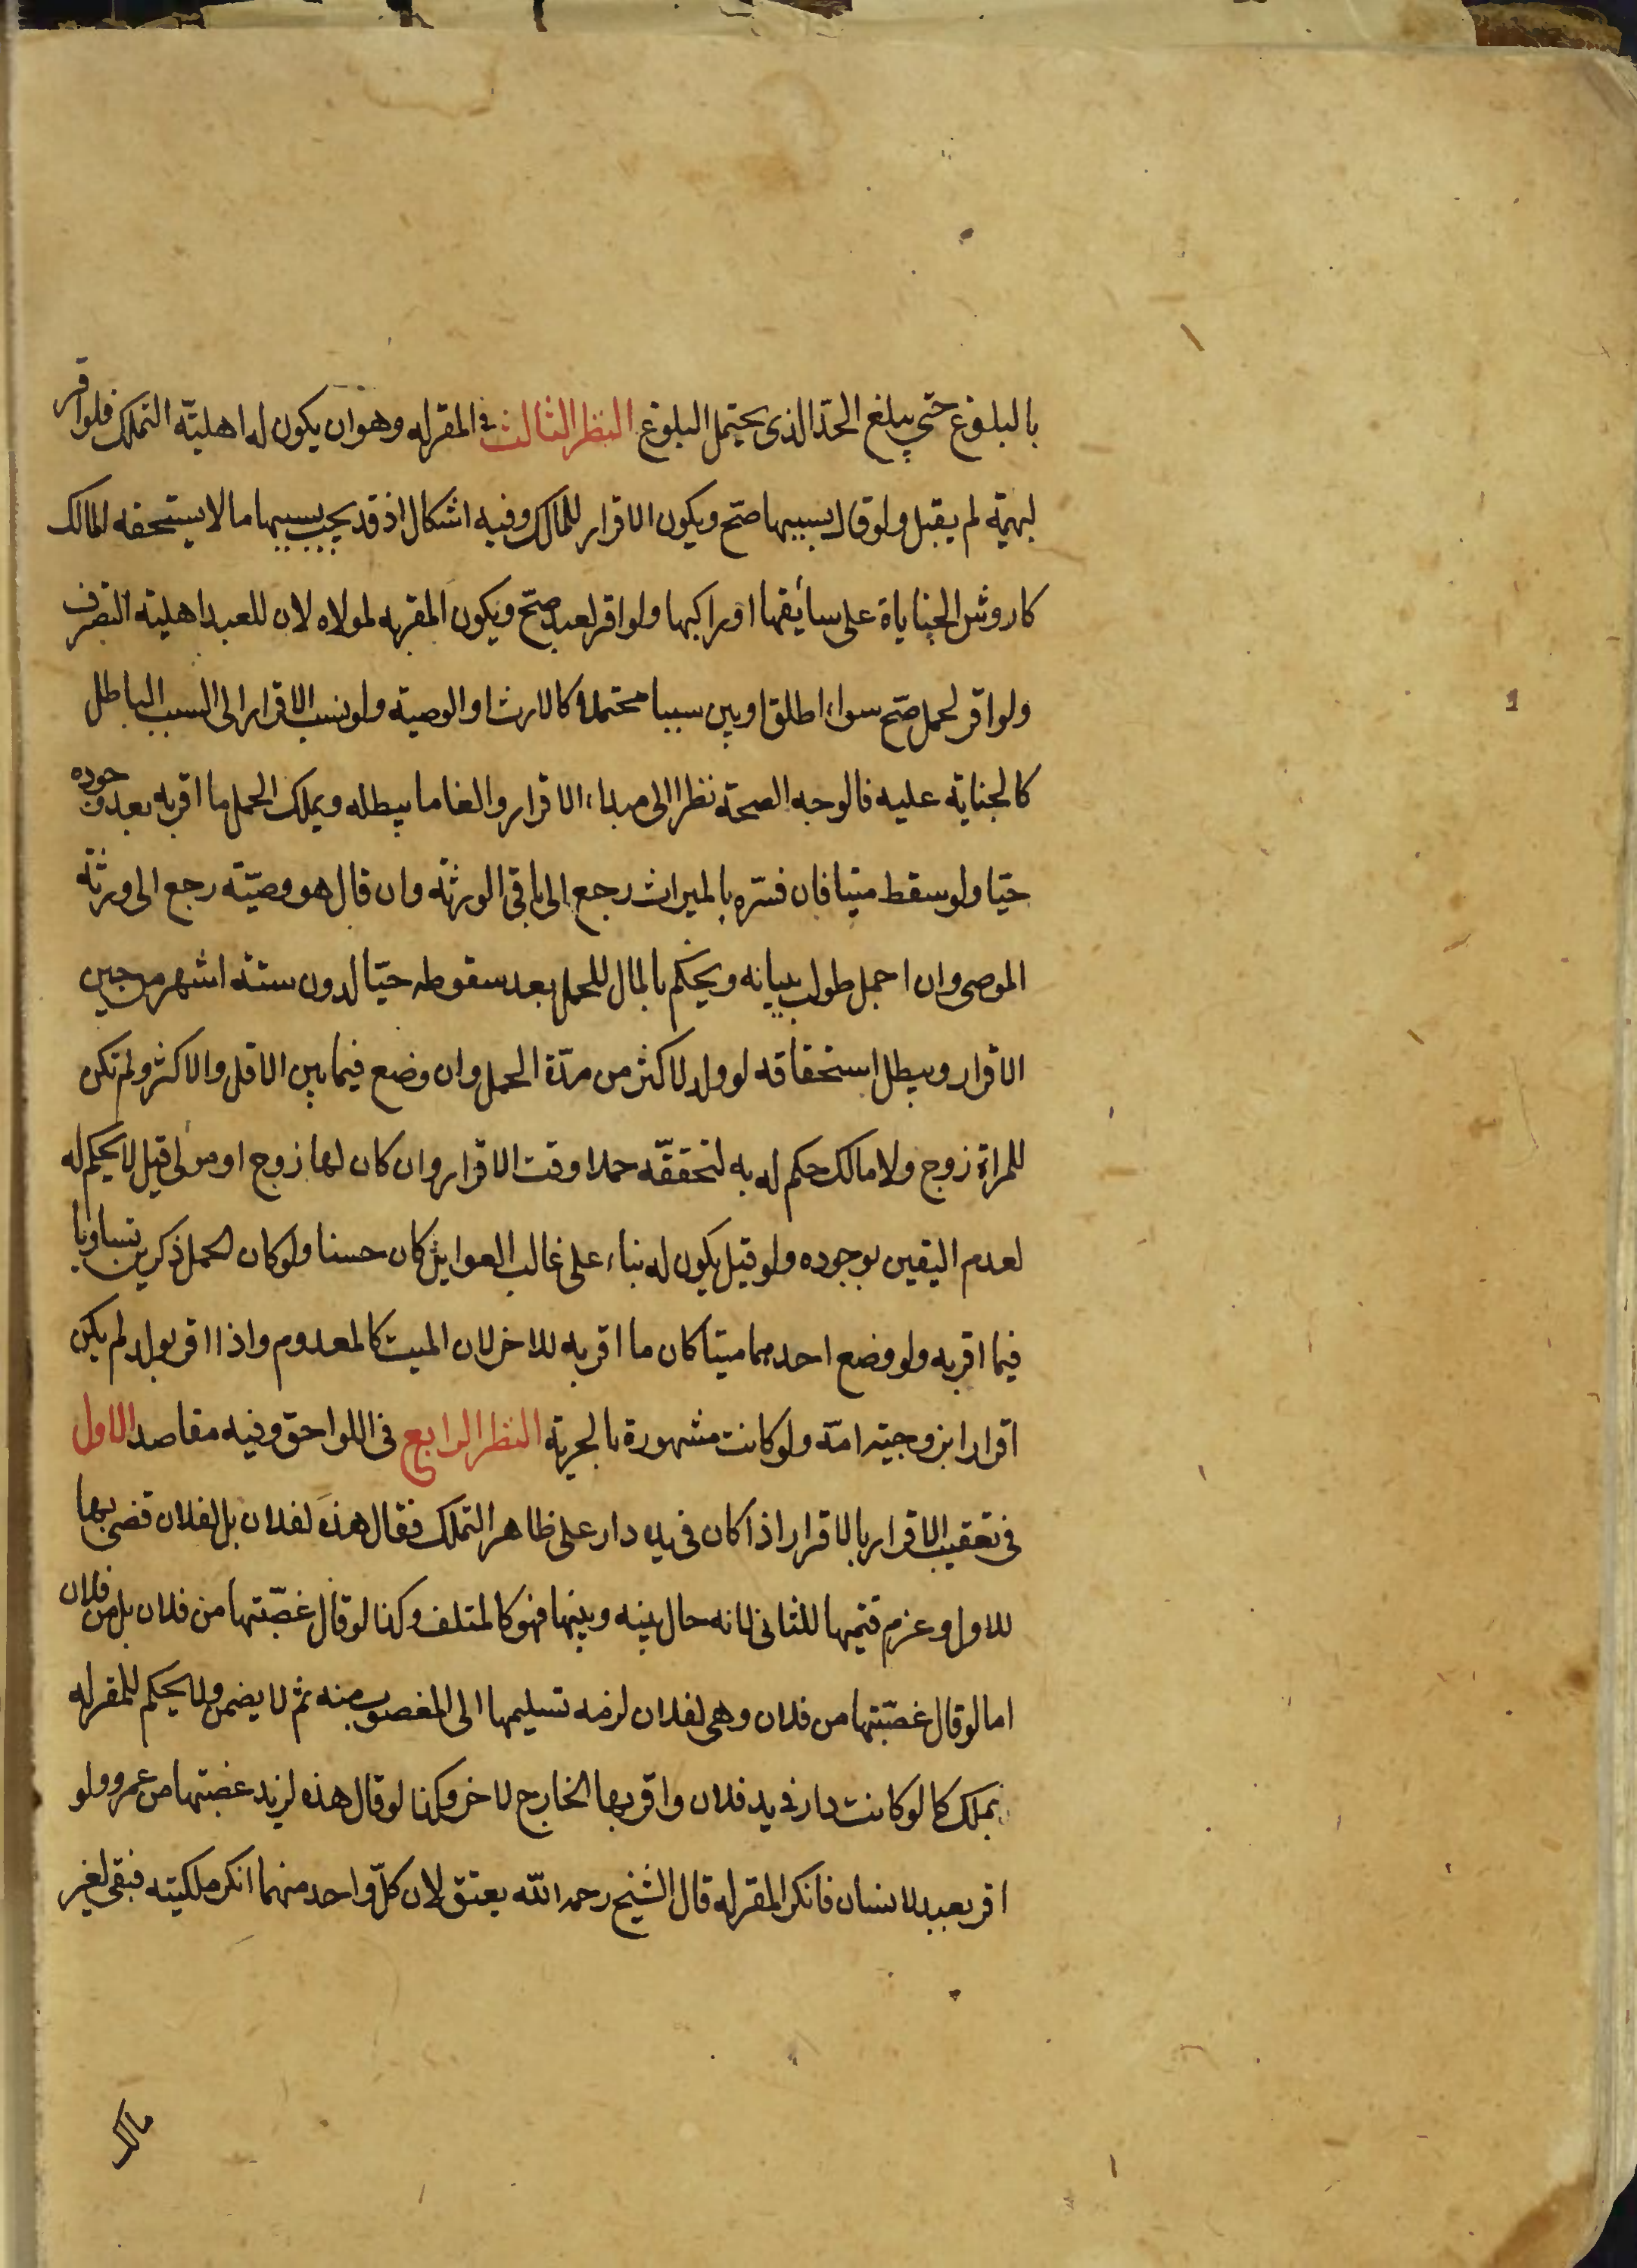 بالبلوغ حتي يبلغ الحدّ الذى يحتمل البلوغ النظر الثالث فى المقر له وهو ان يكون له اهليّة التملك فلو اقر
لبهيمة لم يقبل ولو قال بسببها صحّ ويكون الاقرار للمالك وفيه اشكال اذ قد يجب بسببها ما لا يستحقه المالك
كاروش الجناياة على سائقها او راكبها ولو اقر لعبد صحّ ويكون المقر به لمولاه لان للعبد اهلية التصرف
ولو اقر لحمل صحّ سواء اطلق او بين سببا محتملا كالارث او الوصية ولو نسب الاقرار الى السبب الباطل
كالجناية عليه فالوجه الصحة نظرا الى مبداء الاقرار والغا ما يبطله ويملك الحمل ما اقر به بعد وجوده
حيّا ولو سقط ميتا فان فسّره بالميراث رجع الى باقى الورثة وان قال هو وصيّته رجع الى ورثة
الموصى وان اجمل طولب ببيانه ويحكم بالمال للحمل بعد سقوطه حيّا لدون ستة اشهر من حين
الاقرار ويبطل استحقاقه لو ولد لاكثر من مدّة الحمل وان وضع فيما بين الاقل والاكثر ولم تكن
للمراة زوج ولا مالك حكم له به لتحققّه حملا وقت الاقرار وان كان لها زوج او مولى قيل لا يحكم له
لعدم اليقين بوجوده ولو قيل يكون له بناء على غالب العوايد كان حسنا ولو كان الحمل ذكرين تساويا
فيما اقر به ولو وضع احدهما ميتا كان ما اقر به للاخر لان الميت كالمعدوم واذا اقر بولد لم يكن
اقرارا بزوجيّة امّه ولو كانت مشهورة بالحرية النظر الرابع فى اللواحق وفيه مقاصد الاول
فى تعقيب الاقرار بالاقرار اذا كان فى يده دار على ظاهر التملك فقال هذه لفلان بل لفلان قضى بها
للاول وغرم قيمتها للثانى لانه حال بينه وبينها فهو كالمتلف وكذا لو قال غصبّتها من فلان بل من فلان
اما لو قال غصبّتها من فلان وهى لفلان لزمه تسليمها الى المغصوب منه ثم لا يضمن ولا يحكم للمقر له
بملك كما لو كانت دار فى يد فلان واقر بها الخارج لاخر وكذا لو قال هذه لزيد غصبتها من عمرو ولو
اقر بعبد لانسان فانكر المقر له قال الشيخ رحمه الله يعتق لان كلّ واحد منهما انكر ملكيته فبقى لغير
مالك
1